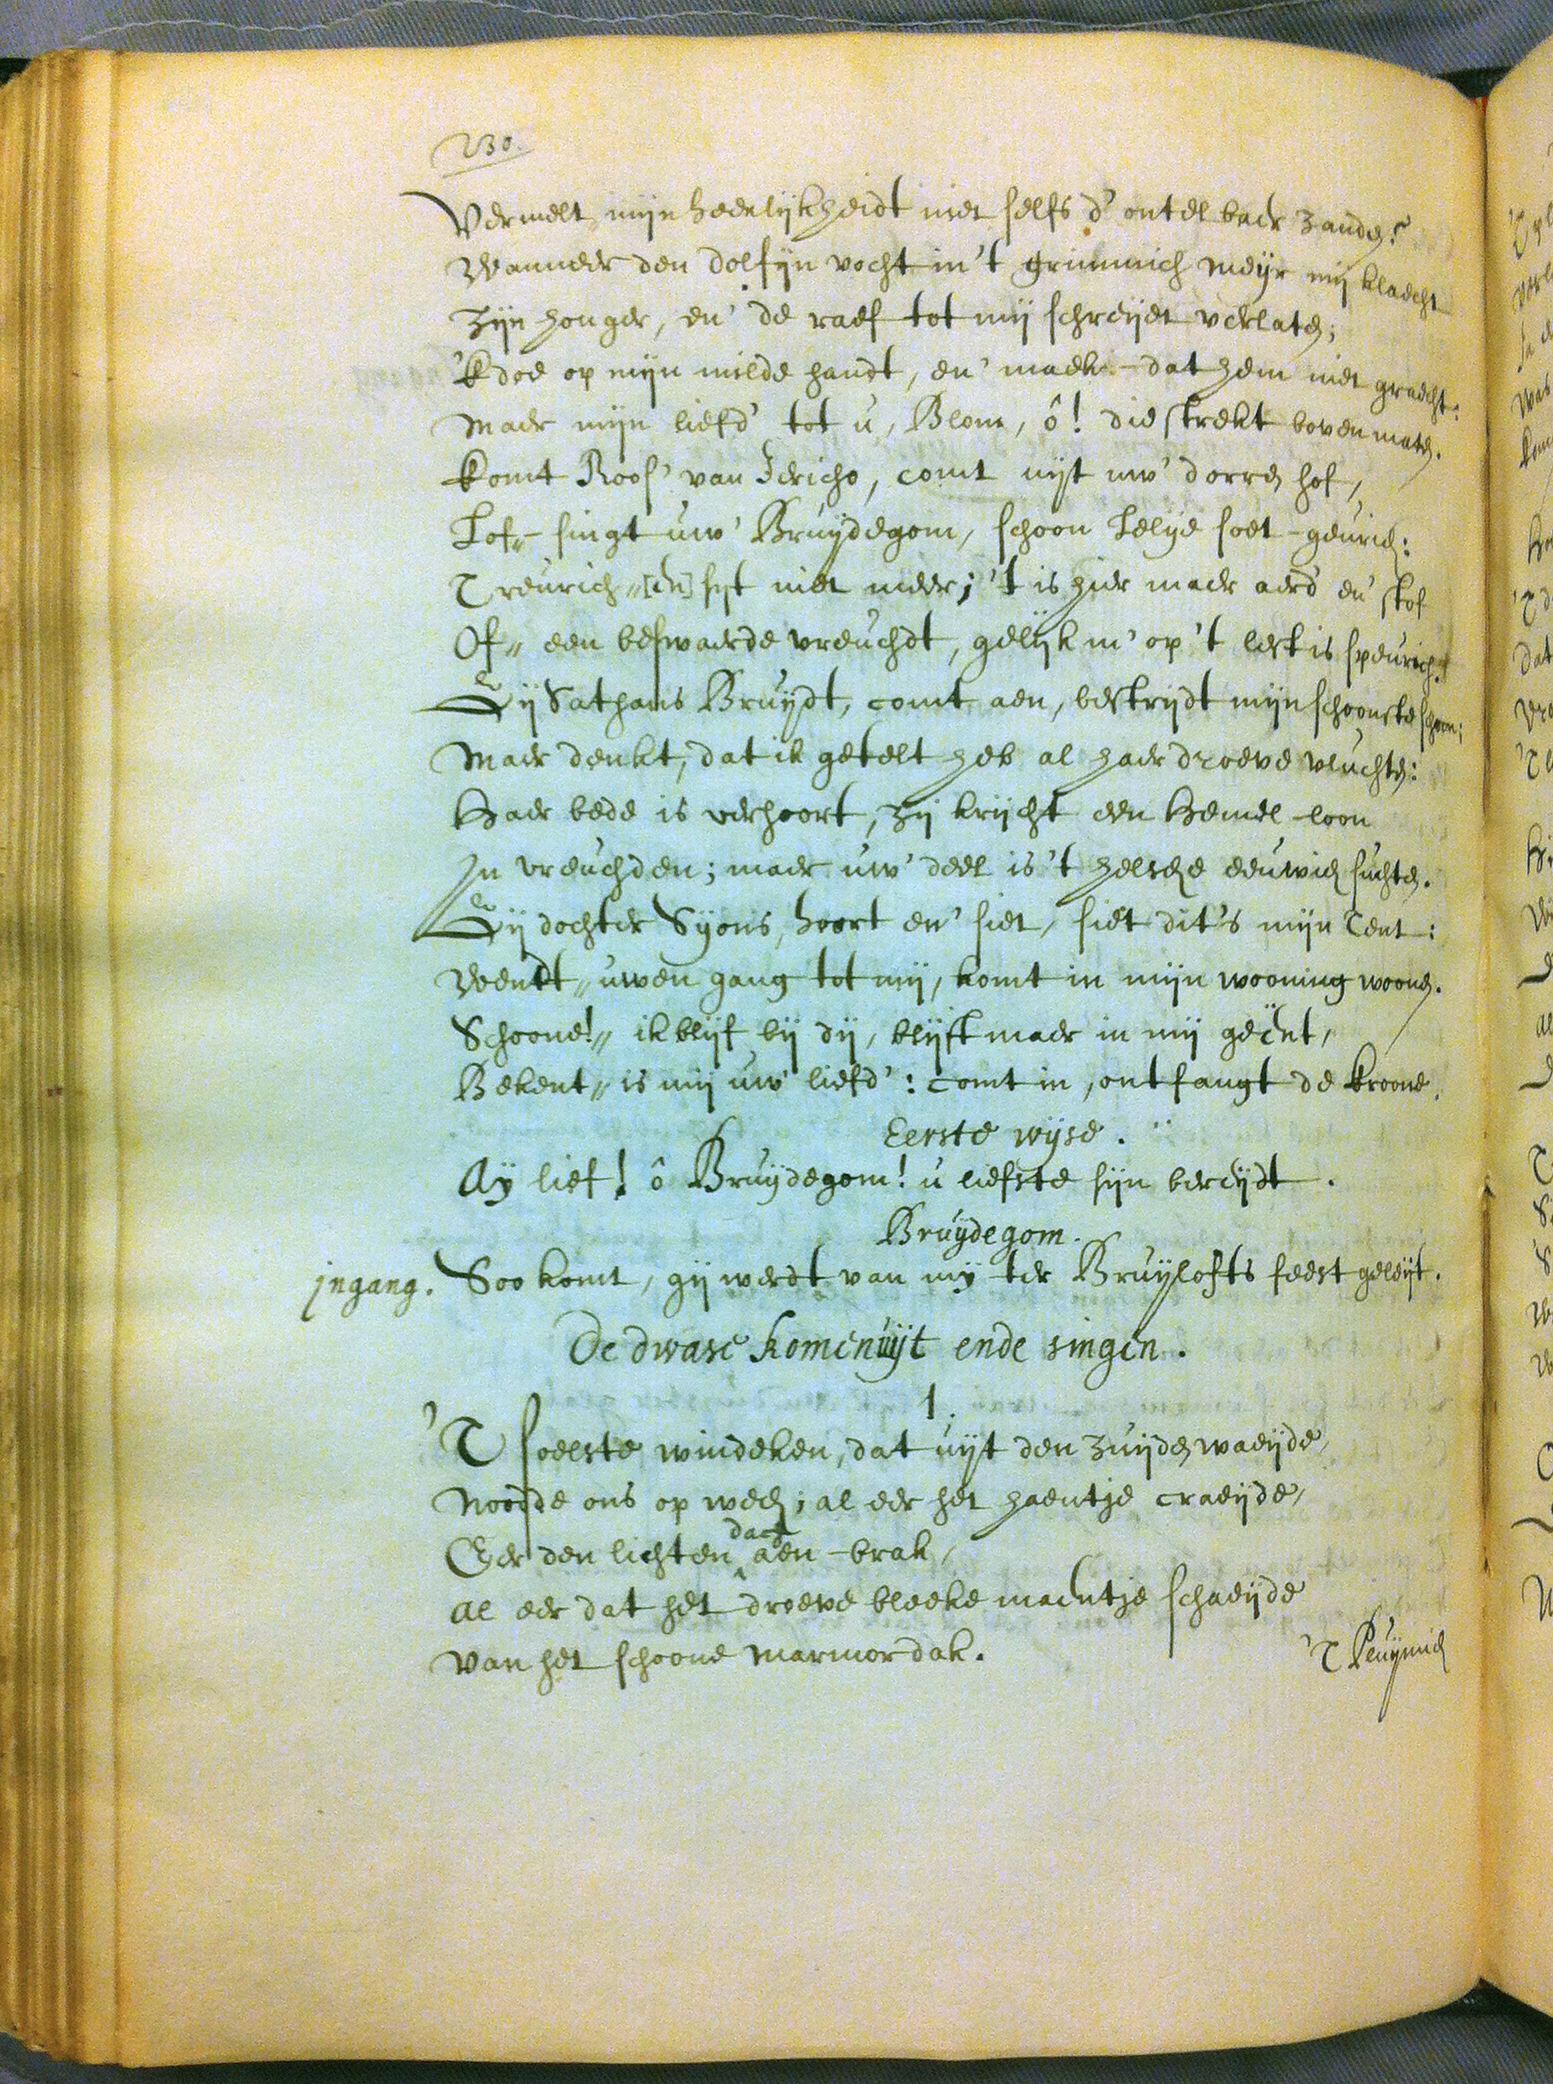 230.
Vermelt mijn heerlijkheidt niet selfs d' ontelbaer zanden?
Wanneer den dolfijn vocht in't grimmich meijr mij klaecht
Zijn honger, en' de raef tot mij schreijet verlaten;
'k doe op mijn milde handt, en' maek-dat hem niet graecht:
Maer mijn liefd' tot u, Blom, ô! die strekt boven maten.
Komt Roos' van Jericho, comt uijt uw' dorren hof,
Lof„-singt uw' Bruijdegom, schoon Lelije soet-geurich:
Treurich„[en] sijt niet meer; 't is hier maer aerd' en' stof
Of„ een beswaerde vreuchdt, gelijk m' op 't lest is speurich.
Gij Sathans Bruijdt, comt aen, bestrijdt mijn schoonste schoon;
Maer denkt, dat ik getelt heb al haer droeve vluchten:
Haer bede is verhoort, zij krijcht een Hemel-loon
In vreuchden; maer uw' deel is 't helsche eeuwich suchten.
Gij dochter Syons, hoort en' siet, siet dit's mijn Tent:
Wendt„ uwen gang tot mij, komt in mijn wooning woonen.
Schoone!„ ik blijf bij dij, blijft maer in mij geënt,
Bekent„ is mij uw' liefd': comt in, ontfangt de kroone.
Eerste wijse.
Aij lief! ô Bruijdegom! u liefste sijn bereijdt.
Bruijdegom.
jngang. Soo komt, gij werdt van mij ter Bruijlofts feest geleijt.
De dwase komen uijt ende singen.
1.
'T soelste windeken, dat uijt den zuijden waeijde,
Noodde ons op wech; al eer het haentje craeijde,
Eer den lichten dach aen-brak,
Al eer dat het droeve bleeke maentje schaeijde
Van het schoone marmor dak.
'T Peuijnich